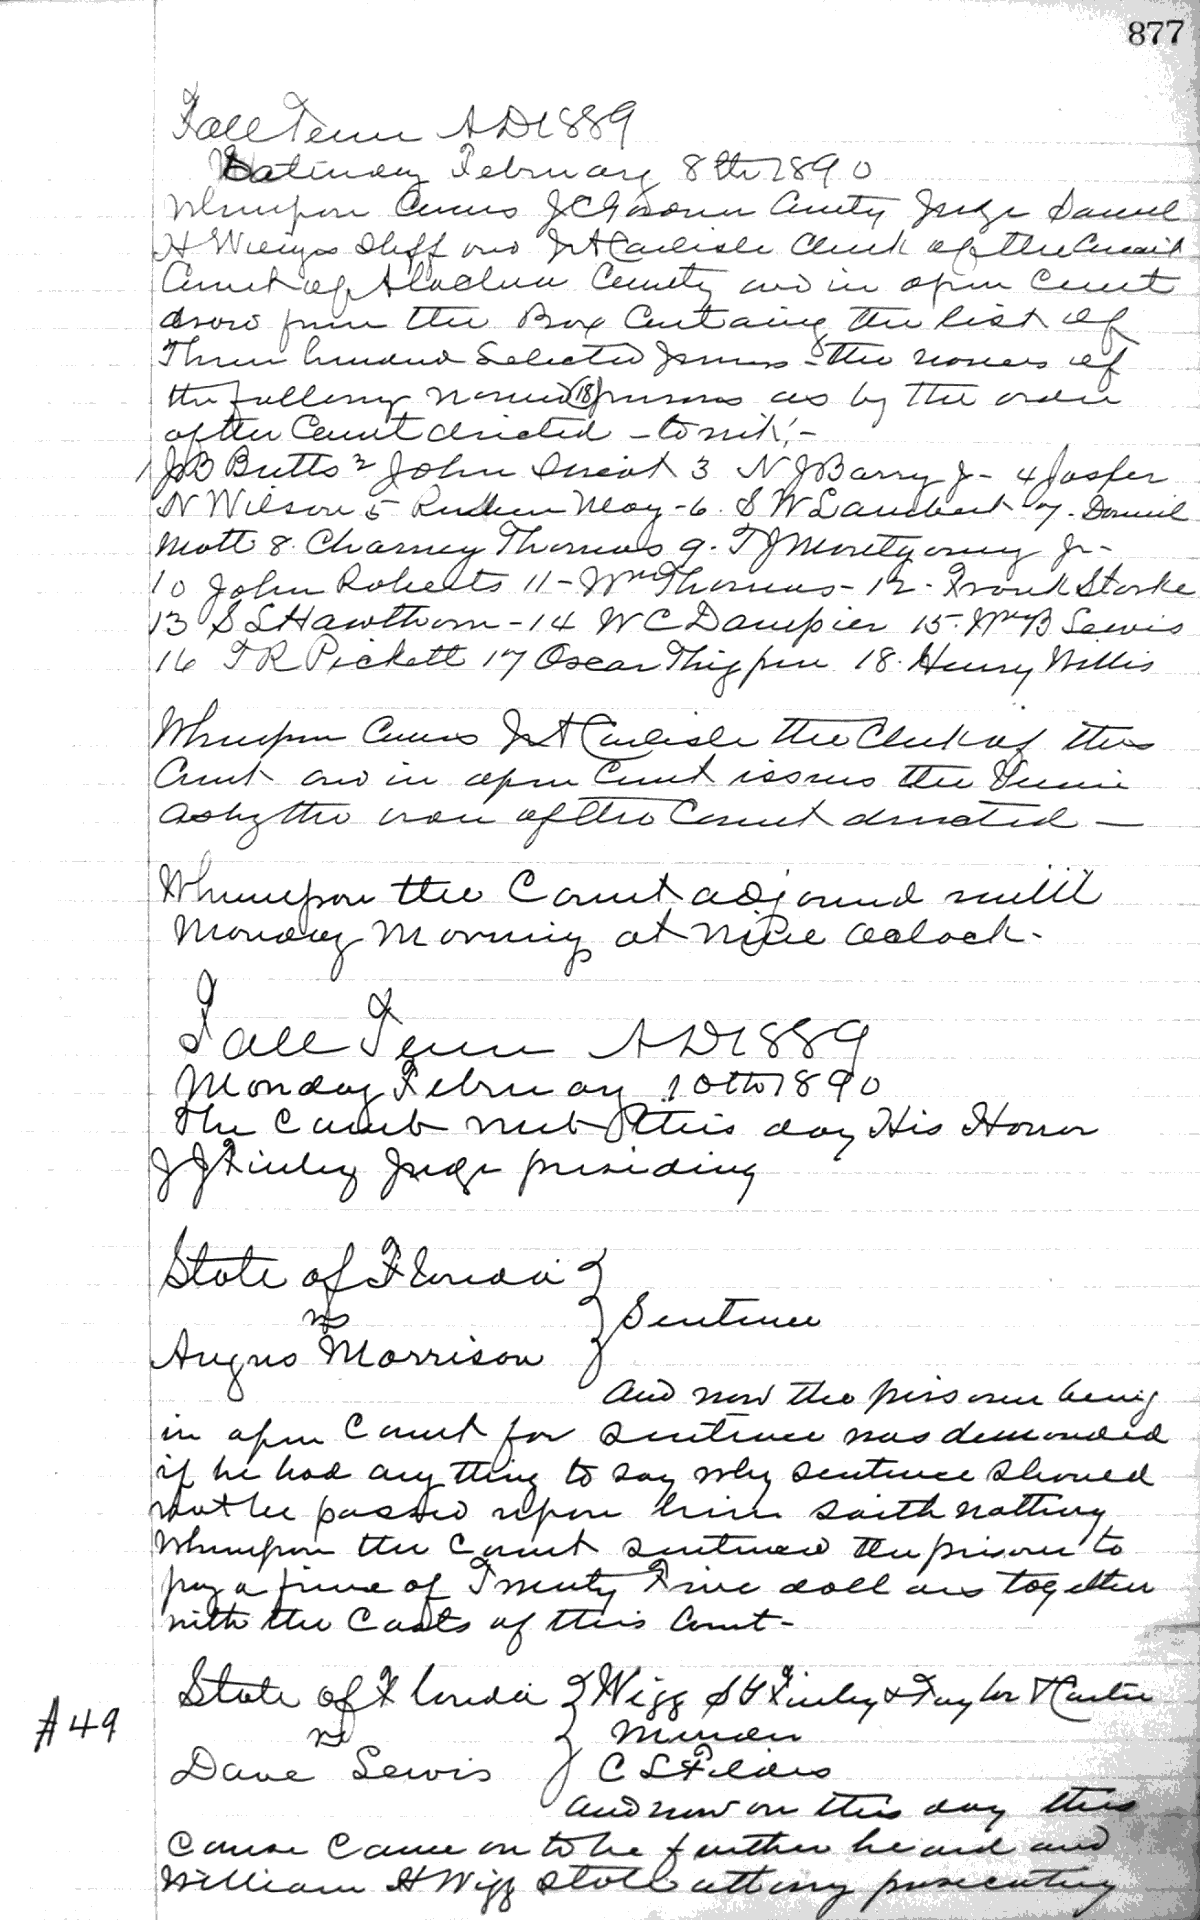 877
Fall Term AD 1889
Saturday February 8th 1890
Whereupon Comes J C Gardner County Judge Samuel
H Wienges Sheff and J A Carlisle Clerk of the Circuit
Court of Alachua County and in open Court
draw from the Box Containg the list of
Three hundred Selected Jurors - the names of
the follong named (18) persons as by the order
of the Court directed - to wit! -
1 J B Butts 2 John Sweat 3 N J Barry Jr - 4 Jasper
N Wilson 5 Reuben May - 6. S W Lambert 7. Daniel
Mott 8. Charney Thomas 9. T J Montgomery Jr -
10 John Roberts 11 - Wm Thomas - 12 - Frank Storke
13 S L Hawthorn - 14 W C Dampier 15. Wm B Lewis
16 T R Pickett 17 Oscar Thigpen 18. Henry Willis
Whereupon Comes J A Carlisle the Clerk of this
Court and in open Court issues the Venire
as by the order of the Court directed —
Whereupon the Court adjorned until
Monday Morning at Nine Oclock -
Fall Term AD 1889
Monday February 10th 1890
The Court met this day His Honor
J J Finley Judge presiding
State of Florida }
vs } Sentence
Angus Morrison }
And now the prisoner being
in open Court for Sentence was demanded
if he had any thing to say why sentence should
not be passed upon him saith nothing
Whereupon the Court sentenced the prisoner to
pay a fine of Twenty Five dollars together
with the Costs of this Court -
State of Florida } Wigg S Y Finley & Taylor & Carter
#49 vs } Murder
Dave Lewis } C L Fildes
And now on this day this
Cause Came on to be further heard and
William H Wigg State attorny prosecuting